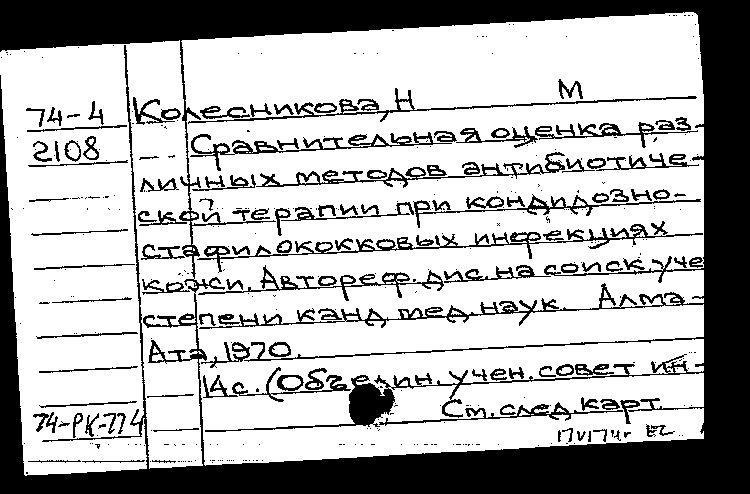 74-4 Колесникова, Н М
2108 Сравнительная оценка раз-
личных методов антибиотиче-
ской терапии при кондидозно-
стафилококковых инфекциях
кожи. Автореф. дис. на соиск. уче
степени канд мед. наук. Алма-
Ата, 1970.
14 с. (Объедин. учен. совет ин-
74-РК-774 См. след. карт.
17 VI 74г EZ